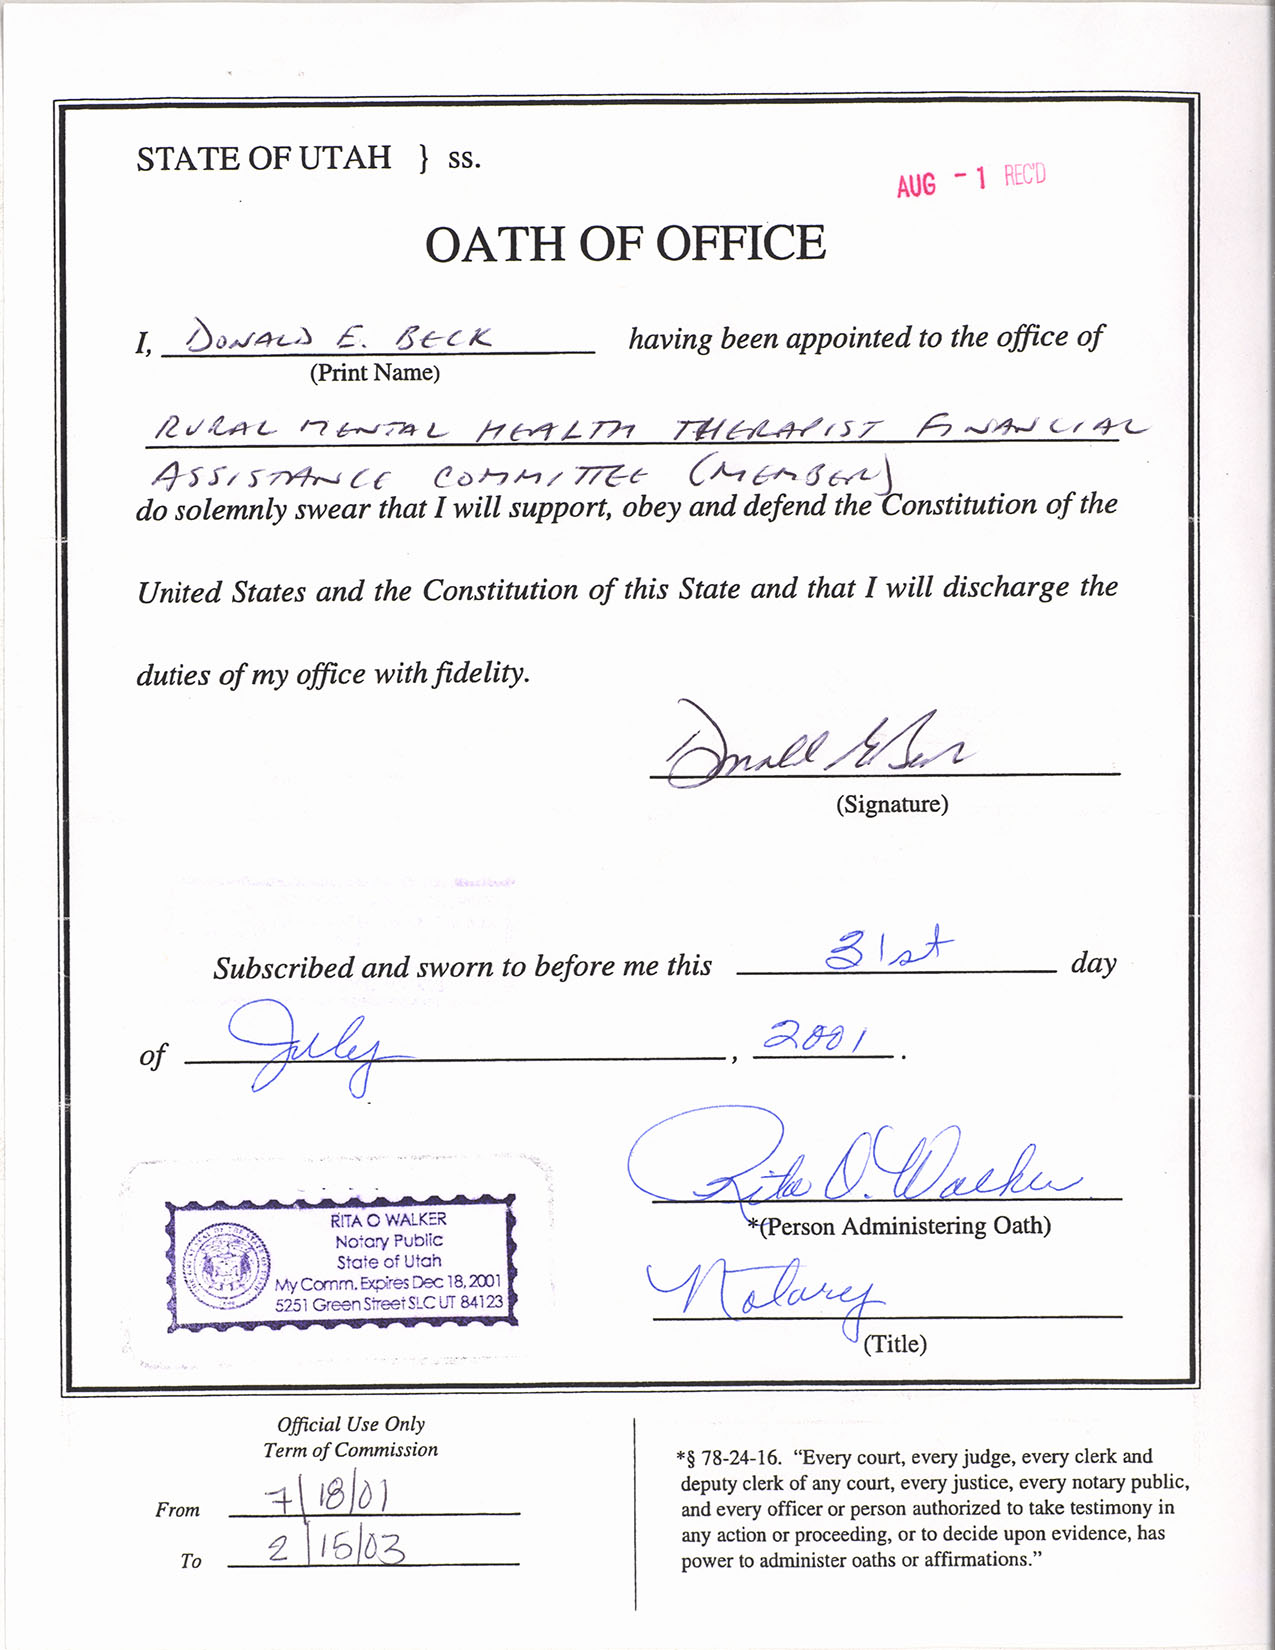 STATE OF UTAH } ss.
AUG - 1 REC'D
OATH OF OFFICE
I, DONALD E. BECK having been appointed to the office of
(Print Name)
RURAL MENTAL HEALTH THERAPIST FINANCIAL
ASSISTANCE COMMITTEE (MEMBER)
do solemnly swear that I will support, obey and defend the Constitution of the
United States and the Constitution of this State and that I will discharge the
duties of my office with fidelity.
Donald E Beck
(Signature)
Subscribed and sworn to before me this 31st day
of July, 2001.
Rita O. Walker
*(Person Administering Oath)
Notary
(Title)
RITA O WALKER
Notary Public
State of Utah
My Comm. Expires Dec 18, 2001
5251 Green Street SLC UT 84123
Official Use Only
Term of Commission
From 7/18/01
To 2/15/03
*§ 78-24-16. “Every court, every judge, every clerk and
deputy clerk of any court, every justice, every notary public,
and every officer or person authorized to take testimony in
any action or proceeding, or to decide upon evidence, has
power to administer oaths or affirmations.”